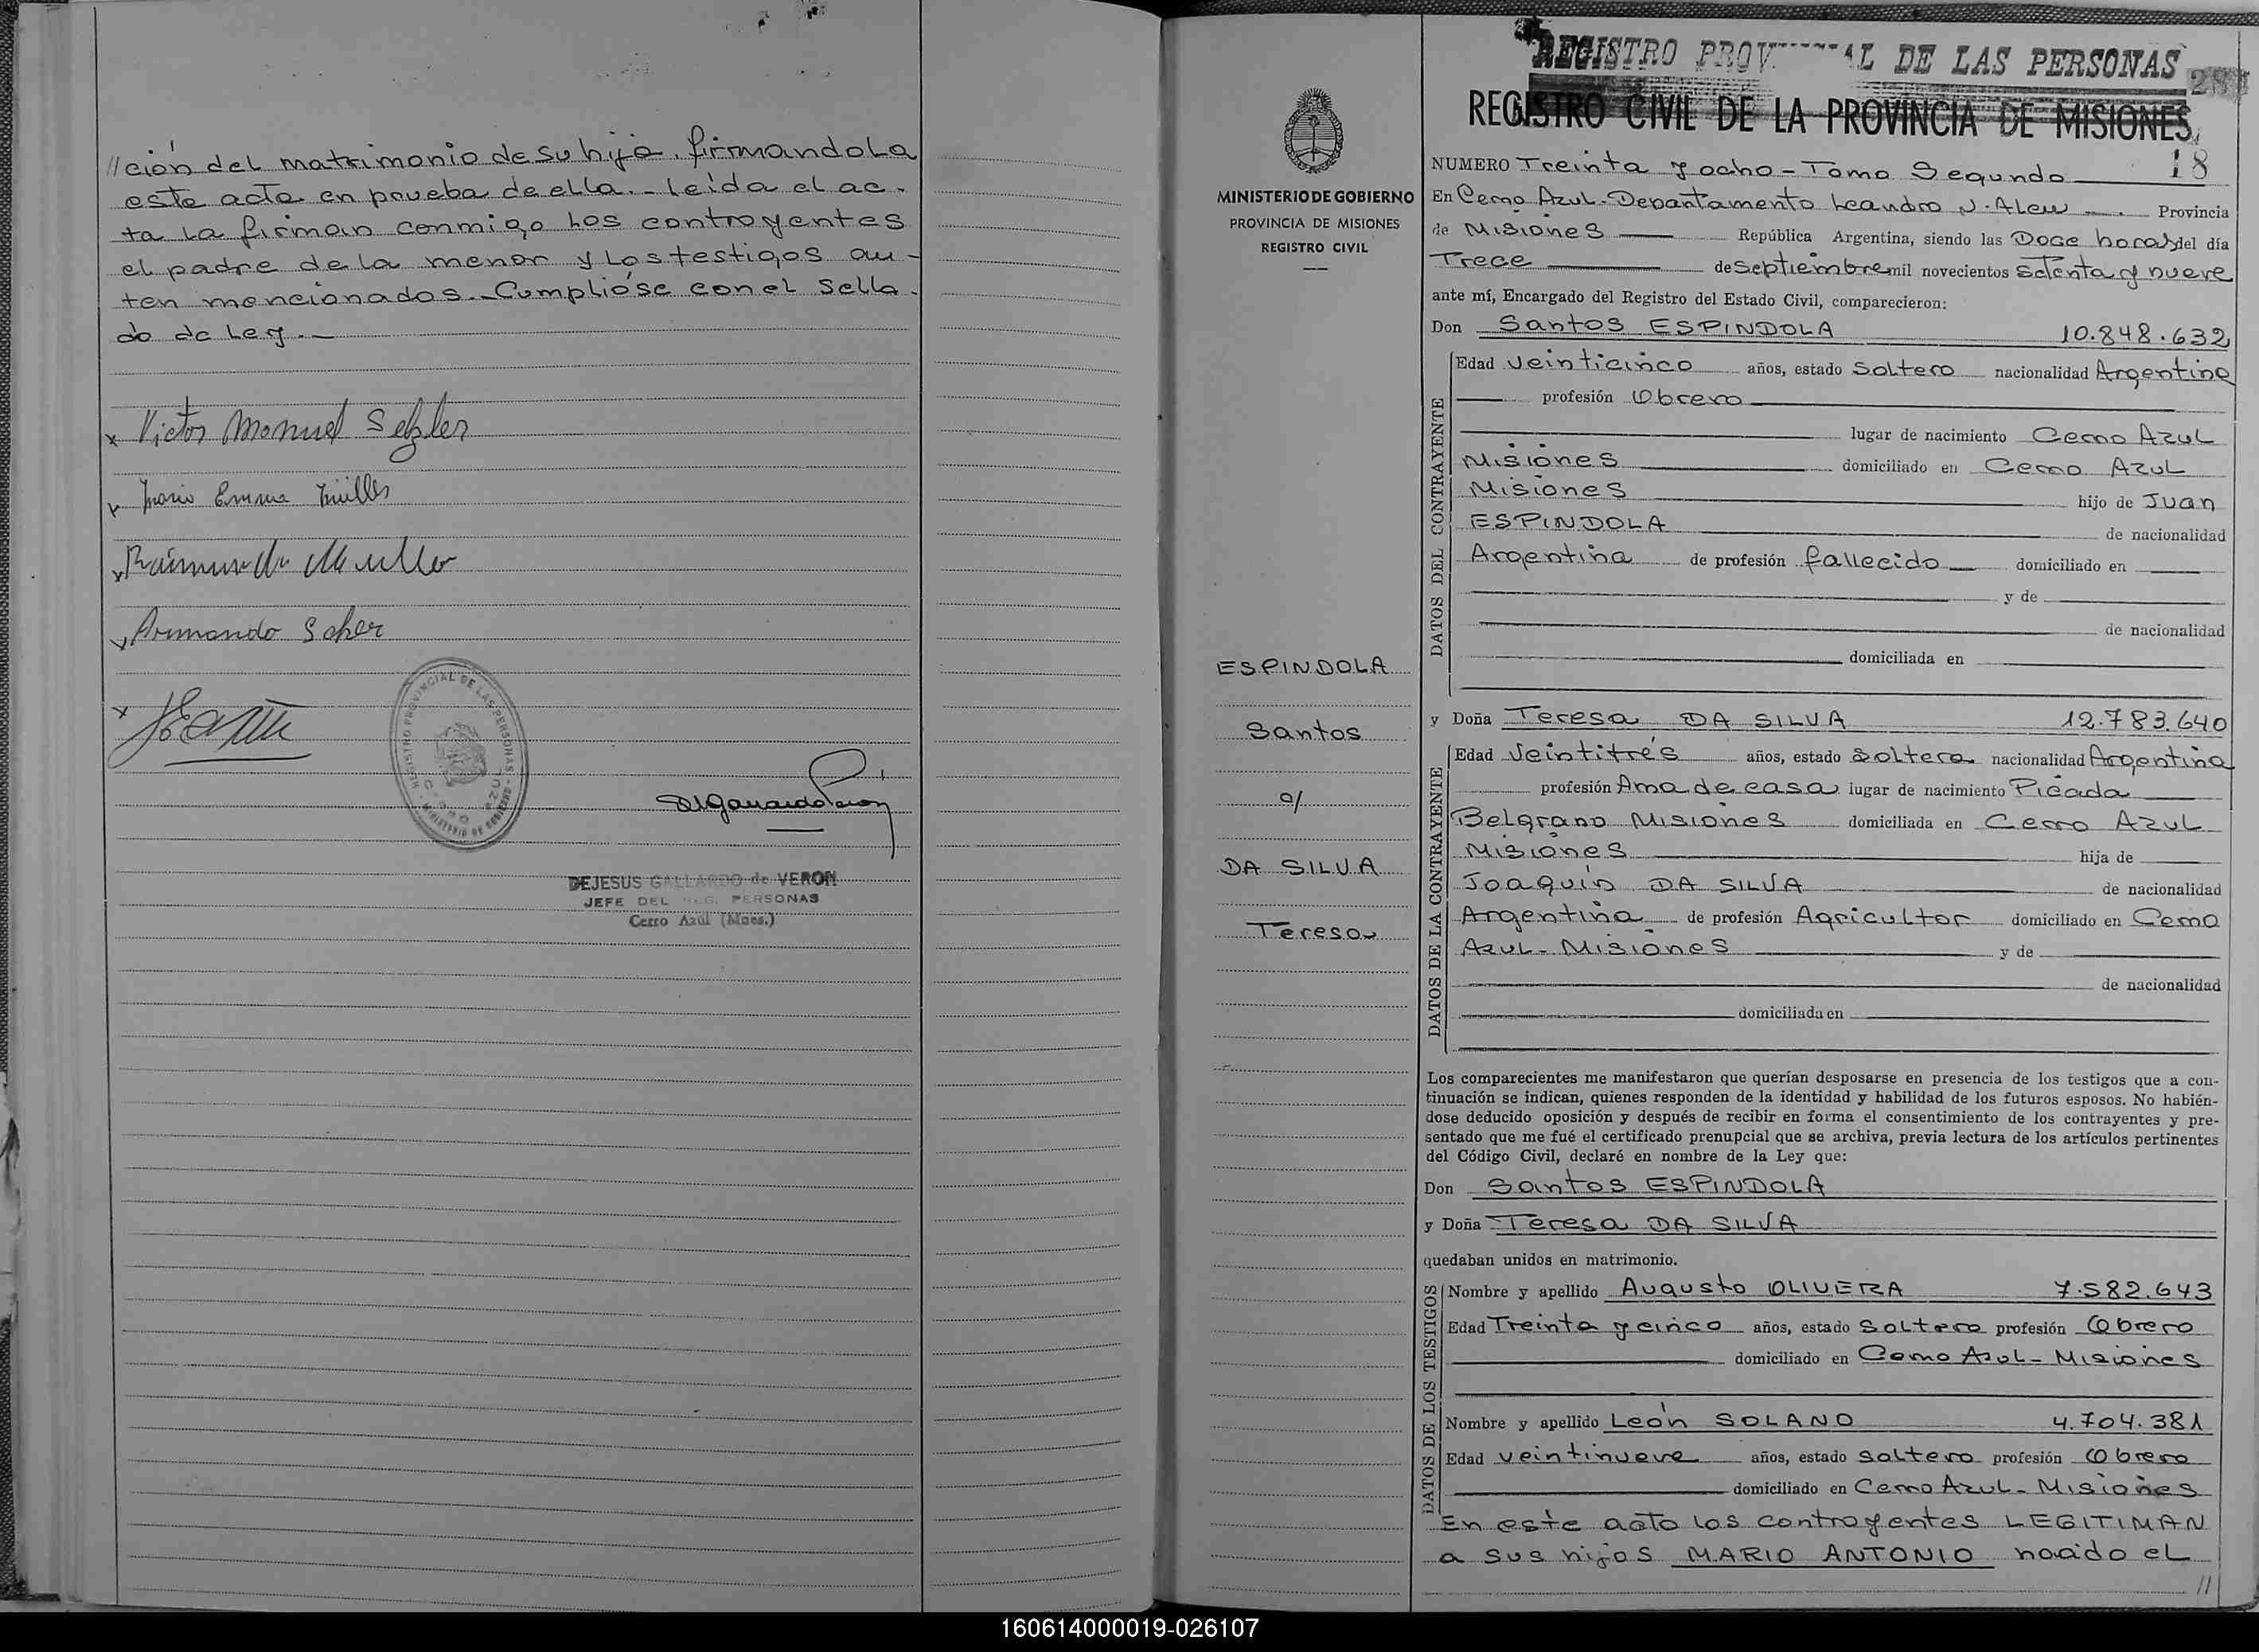 //ción del matrimonio de su hija. firmandola
este acta en prueba de ella.- Leída el ac-
ta la firman conmigo los contrayentes
el padre de la menor y los testigos an-
ten mencionados.- Cumplióse con el sella-
do de Ley.-
x Victor Manuel Selzler
x Maria Emma Müller
x Raimundo Muller
x Armando Scher
x
REGISTRO PROVINCIAL DE LAS PERSONAS - MINISTERIO DE GOBIERNO
CERRO AZUL
DEJESUS GALLARDO de VERON
JEFE DEL REG. PERSONAS
Cerro Azul (Mnes.)
MINISTERIO DE GOBIERNO
PROVINCIA DE MISIONES
REGISTRO CIVIL
ESPINDOLA
Santos
c/
DA SILVA
Teresa
REGISTRO PROVINCIAL DE LAS PERSONAS
REGISTRO CIVIL DE LA PROVINCIA DE MISIONES
18
NUMERO Treinta y ocho - Tomo Segundo
En Cerro Azul - Departamento Leandro N. Alem Provincia
de Misiones República Argentina, siendo las Doce horas del día
Trece de Septiembre mil novecientos setenta y nueve
ante mí, Encargado del Registro del Estado Civil, comparecieron:
Don Santos ESPINDOLA 10.848.632
DATOS DEL CONTRAYENTE
Edad veinticinco años, estado soltero nacionalidad Argentina
profesión Obrero
lugar de nacimiento Cerro Azul
Misiones domiciliado en Cerro Azul
Misiones hijo de Juan
ESPINDOLA de nacionalidad
Argentina de profesión fallecido domiciliado en
y de
de nacionalidad
domiciliada en
y Doña Teresa DA SILVA 12.783.640
DATOS DE LA CONTRAYENTE
Edad Veintitrés años, estado soltera nacionalidad Argentina
profesión Ama de casa lugar de nacimiento Picada
Belgrano Misiones domiciliada en Cerro Azul
Misiones hija de
Joaquín DA SILVA de nacionalidad
Argentina de profesión Agricultor domiciliado en Cerro
Azul - Misiones y de
de nacionalidad
domiciliada en
Los comparecientes me manifestaron que querían desposarse en presencia de los testigos que a con-
tinuación se indican, quienes responden de la identidad y habilidad de los futuros esposos. No habién-
dose deducido oposición y después de recibir en forma el consentimiento de los contrayentes y pre-
sentado que me fué el certificado prenupcial que se archiva, previa lectura de los artículos pertinentes
del Código Civil, declaré en nombre de la Ley que:
Don Santos ESPINDOLA
y Doña Teresa DA SILVA
quedaban unidos en matrimonio.
DATOS DE LOS TESTIGOS
Nombre y apellido Augusto OLIVERA 7.582.643
Edad Treinta y cinco años, estado soltero profesión Obrero
domiciliado en Cerro Azul - Misiones
Nombre y apellido León SOLANO 4.704.381
Edad veintinueve años, estado soltero profesión Obrero
domiciliado en Cerro Azul - Misiones
En este acto los contrayentes LEGITIMAN
a sus hijos MARIO ANTONIO nacido el
//
160614000019-026107